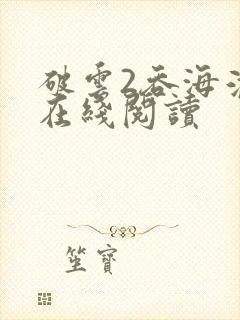 破雲2吞海
在綫閱讀
坐寶